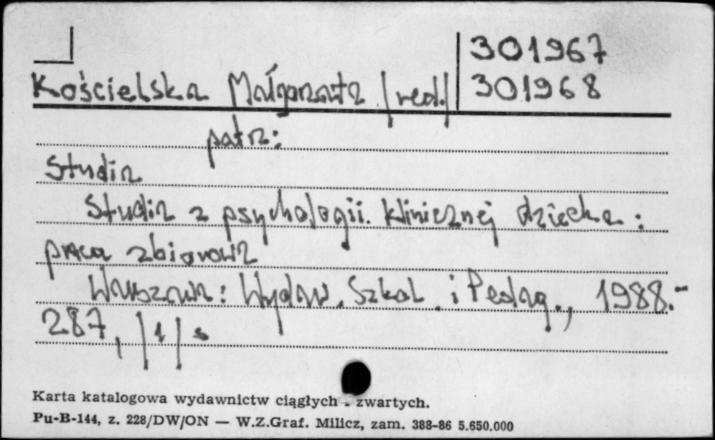 301967
Kościelska Małgorzata /red./ 301968
patrz:
Studia
Studia z psychologii klinicznej dziecka :
praca zbiorowa
Warszawa : Wydaw. Szkol. i Pedag., 1988.-
287, /1/ s
Karta katalogowa wydawnictw ciągłych - zwartych.
Pu-B-144, z. 228/DW/ON — W.Z.Graf. Milicz, zam. 388-86 5.650.000